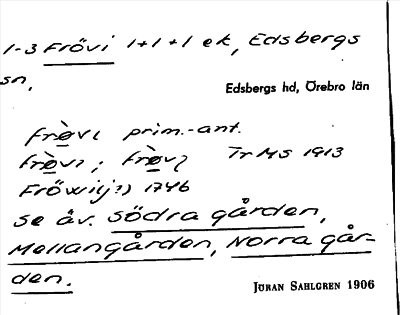 1-3 Frövi 1+1+1 ek, Edsbergs
sn,
Edsbergs hd, Örebro län
frø̀vɩ prim.-ant.
frø̀vɩ; frø̀vɩ Tr MS 1913
Fröwij(?) 1746
se äv. Södra gården,
Mellangården, Norra går-
den.
Jöran Sahlgren 1906